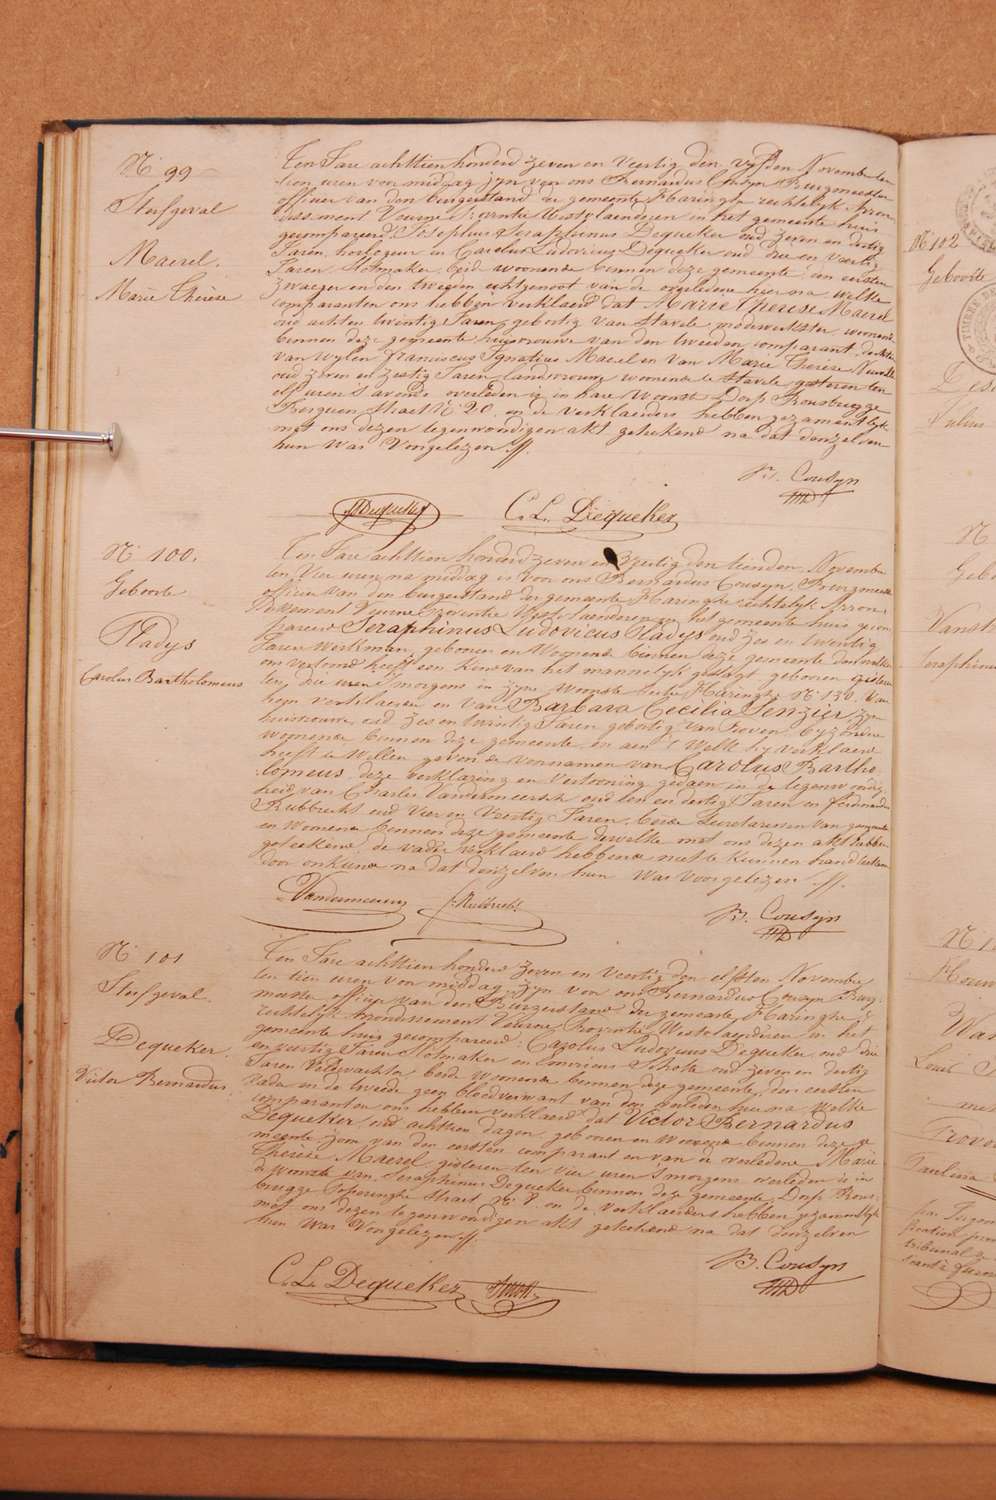 N° 99
Sterfgeval
Maerel.
Marie Thérèse
Ten Jare achttien honderd zeven en Veertig den vyfden November ten
tien uren voor middag zyn voor ons Bernardus Cousyn Burgmeester
officier van den burgerstand der gemeente Haringhe rechtelyk Arron-
dissement Veurne Provintie Westvlaenderen in het gemeente huis
gecompareerd, Josephus Seraphinus Dequeker oud zeven en dertig
Jaren horlogeur en Carolus Ludovicus Dequeker oud drie en veertig
Jaren Slotmaker, beid woonende binnen deze gemeente, den eersten
zwaeger en den tweeden echtgenoot van de overledene hier na, welke
comparanten ons hebben verklaerd dat Marie Therese Maerel
oud achten twintig Jaren, geboortig van Stavele, modewerkster woonende
binnen deze gemeente huisvrouwe van den tweeden comparant, dochter
van wylen Franciscus Ignatius Maerel en van Marie Thérèse
oud zeven en zestig Jaren landvrouw woonende te Stavele gisteren ten
elf uren 's avends overleden is in hare Woonst Dorp Rousbrugge
Berguen Straet N° 20. en de verklaerders hebben gezamentlyk
met ons dezen tegenwoordigen akt geteekend na dat denzelven
hun Was Voorgelezen.
B. Cousyn
JSDequeker C. L. Dequeker
N° 100.
Geboorte
Pladys
Carolus Bartholomeus
Ten Jare achttien honderd zeven en Veertig den tienden November
ten Vier uren na middag is voor ons Bernardus Cousyn, Burgmeester
officier van den burgerstand der gemeente Haringhe rechtelyk Arron-
dissement Veurne Provintie West-laenderen in het gemeente huis gecom-
pareerd Seraphinus Ludovicus Pladys oud zes en twentig
Jaren Werkman, geboren en Woonende binnen deze gemeente den welken
ons vertoond heeft een kind van het mannelyk geslagt, geboren gisteren
ten drie uren 's morgens in zyne Woonste Haringhe N° 130. Van
hem verklaerder en van Barbara Cecilia Senzier, zyne
huisvrouwe oud zes en twintig Jaren geboortig van Proven, byzondere
woonende binnen deze gemeente, en aen 't Welk hy verklaerd
heeft te Willen geven de voornamen van Carolus Bartho-
lomeus, deze verklaring en Vertooning gedaen in de tegenwoordig-
heid van Charles Vandermeersch oud een en dertig Jaren en ferdinandus
Rubbrecht oud Vier en Veertig Jaren, beide Secretarissen van
en Woonende binnen deze gemeente dewelke met ons dezen akt hebben
geteekend, de vader verklaerd hebbende niet te kunnen handteekenen
voor onkunde na dat denzelven hun Was Voorgelezen.
Vandermeersch F. Rubbrecht B. Cousyn
N° 101
Sterfgeval.
Dequeker.
Victor Bernardus
Ten Jare achttien honderd zeven en Veertig den elfsten November
ten tien uren voor middag, zyn voor ons Bernardus Cousyn Burg-
meester officier van den Burgerstand der gemeente Haringhe
rechtelyk Arrondissement Veurne Provintie Westvlaenderen in het
gemeente huis gecompareerd: Carolus Ludovicus Dequeker oud drie
en veertig Jaren Slotmaker en Schots oud zeven en dertig
Jaren Veldwachter, beide Woonende binnen deze gemeente, den eersten
Vader en de tweede geen bloedverwant van den overleden hier na, welke
comparanten ons hebben verklaerd dat Victor Bernardus
Dequeker, oud achttien dagen, geboren en Woonende binnen deze ge-
meente zoon van den eersten comparant en van de overledene Marie
Therese Maerel, gisteren ten vier uren 's morgens overleden is in
de Woonste van Seraphinus Dequeker binnen deze gemeente, Dorp Rous-
brugge Poperinghe Straet N° 8. en de verklaerders hebben gezamentlyk
met ons dezen tegenwoordigen akt geteekend na dat denzelven
hun Was Voorgelezen.
B. Cousyn
C. L. Dequeker
N° 102
Geboorte
Julius
N°
Gebo
Vanst
Seraphinus
N° 1
Louis
Provo
Paulina
tribunal